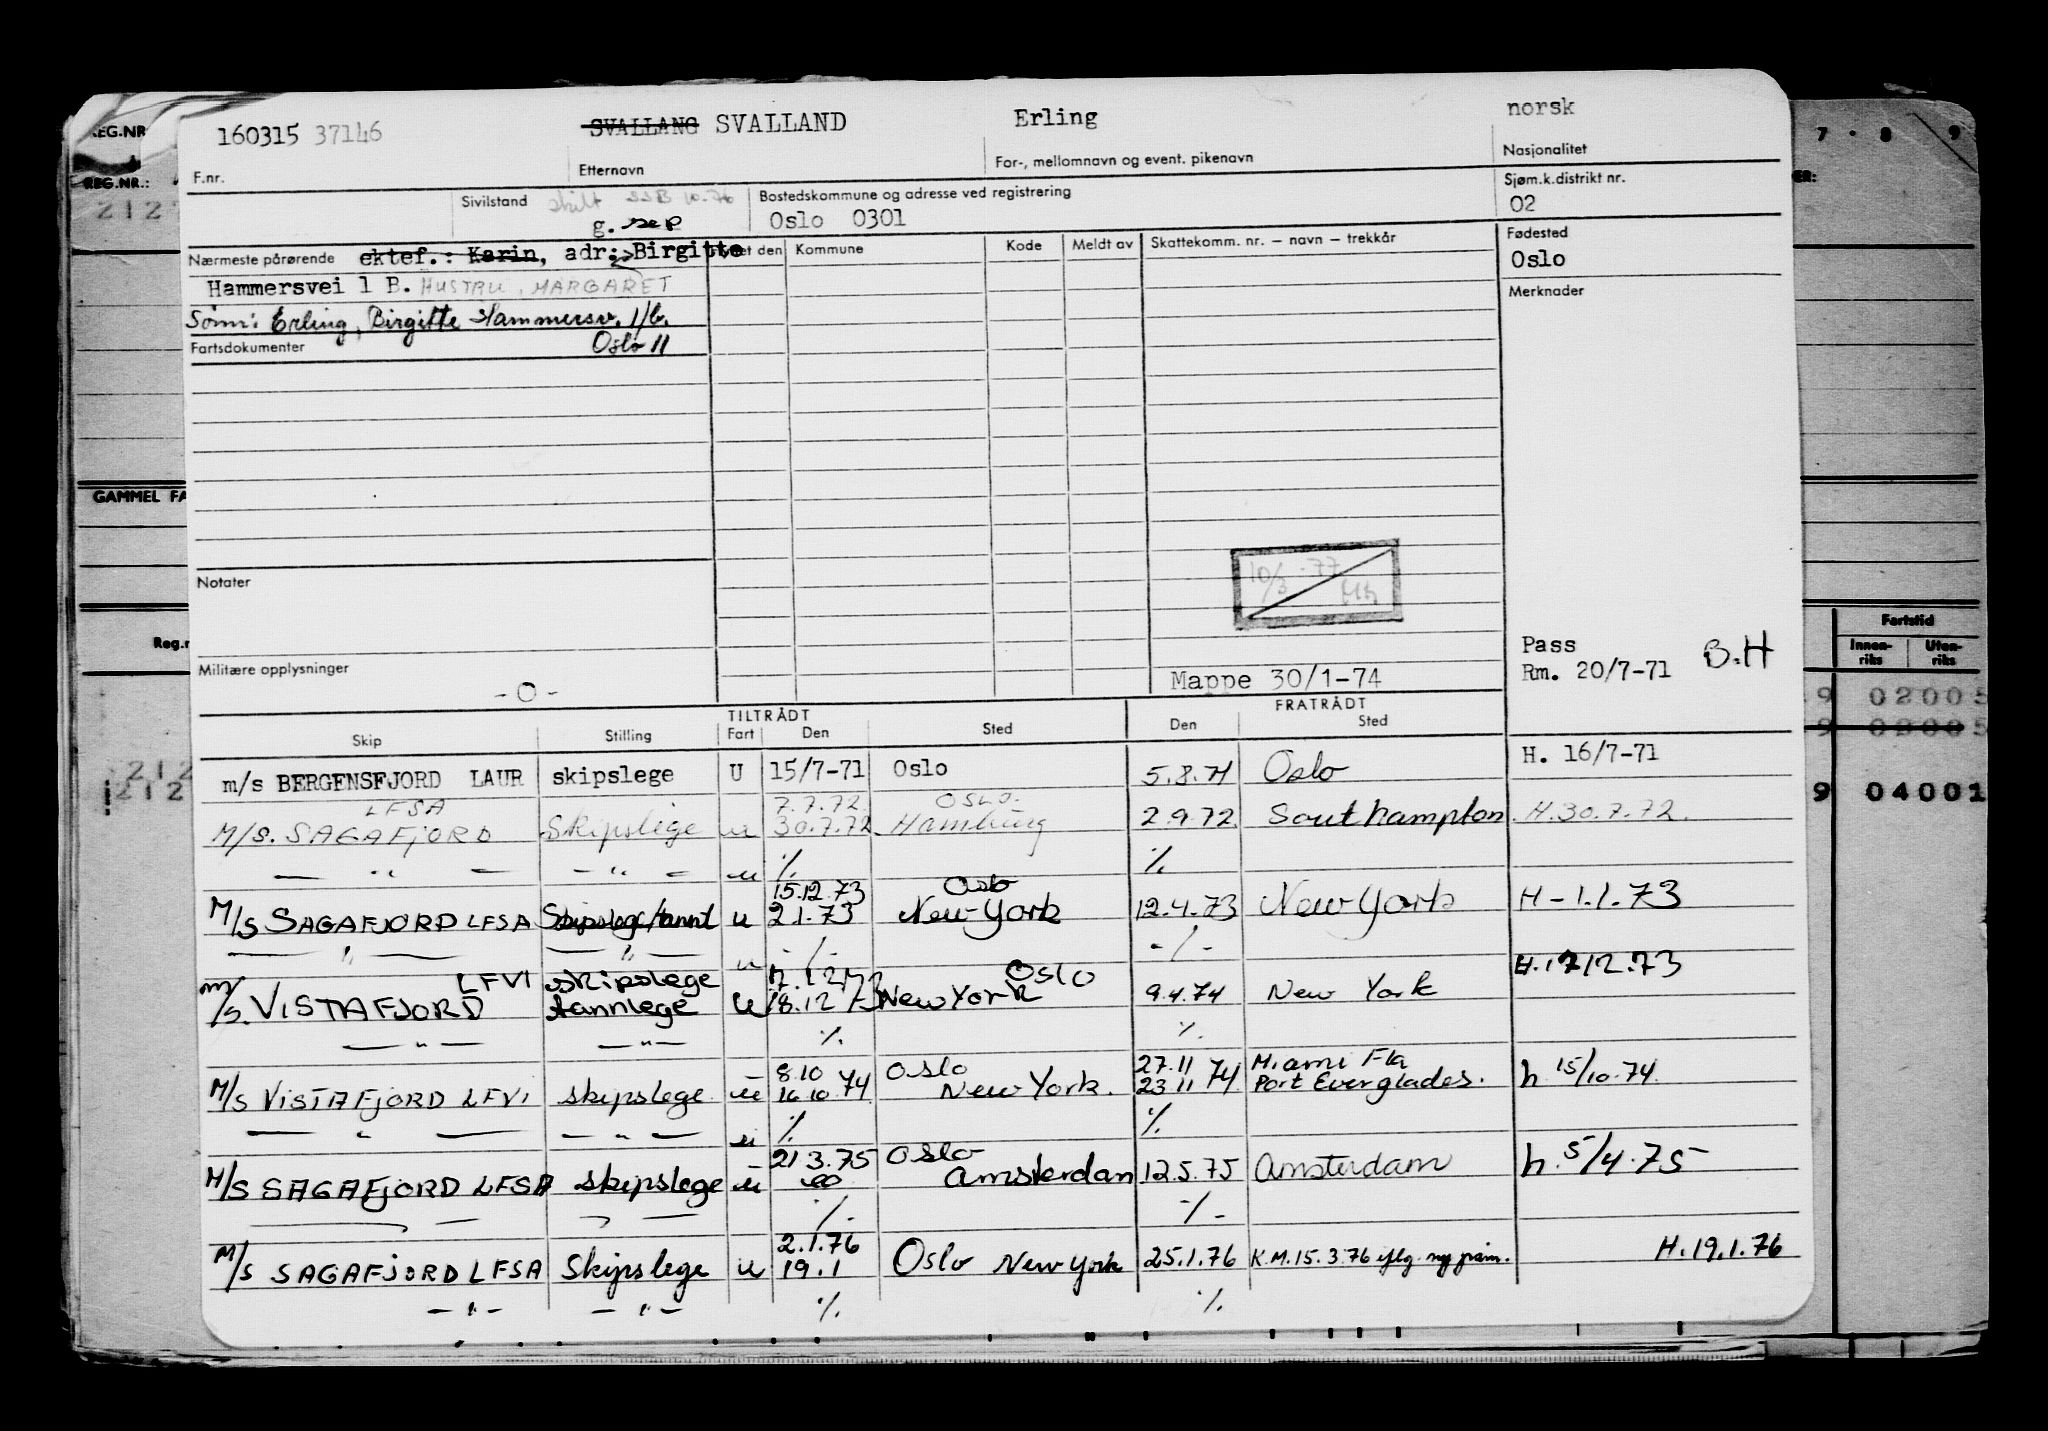 REG.NR
REG.NR.:
212
GAMMEL FA
Reg.n
212
212
7 . 8 9
ER:
Fartstid
Innen-riks Uten-riks
9 02005
9 02005
9 04001
160315 37146 SVALLANG SVALLAND Erling norsk
F.nr. Etternavn For-, mellomnavn og event. pikenavn Nasjonalitet
Sivilstand skilt SSB 10-76 Bostedskommune og adresse ved registrering Sjøm.k.distrikt nr.
g. sep Oslo 0301 02
Nærmeste pårørende ektef.: Karin, adr: Birgitte
et den Kommune Kode Meldt av Skattekomm. nr. – navn – trekkår Fødested
Oslo
Hammersvei 1 B. HUSTRU, MARGARET
Merknader
Sønn: Erling, Birgitte Hammersv. 1/b.
Fartsdokumenter Oslo 11
10/3 -77
Notater
Militære opplysninger
-0-
Mappe 30/1-74
Pass
Rm. 20/7-71 B.H
TILTRÅDT FRATRÅDT
Skip Stilling Fart Den Sted Den Sted
m/s BERGENSFJORD LAUR skipslege U 15/7-71 Oslo 5.8.71 Oslo H. 16/7-71
LFSA 7.7.72 OSLO.
M/S. SAGAFJORD Skipslege u 30.7.72 Hamburg 2.9.72 Southampton H.30.7.72.
— " — — " — u % %
15.12.73 Oslo
M/S SAGAFJORD LFSA Skipslege/tannl u 2.1.73 New York 12.4.73 New York H-1.1.73
— " — — " — u -/- -/-
LFVI skipslege 17.12.73 Oslo H.1712.73
m/s. VISTAFJORD tannlege u 18.12 73 New York 9.4.74 New York
— " — — " — % %
8.10 Oslo 27.11 Miami Fla
M/S VISTAFJORD LFVI skipslege u 16.10.74 New York. 23.11 74 Port Everglades. h 15/10.74.
— " — — " — u % %
21 3.75 Oslo
M/S SAGAFJORD LFSA skipslege u Amsterdam 12.5.75 Amsterdam h. 5/4.75
— " — — " — % %
2.1.76
M/S SAGAFJORD LFSA Skipslege u 19.1 Oslo New York 25.1.76 K.M.15.3.76 H.19.1.76
— " — — " — % %